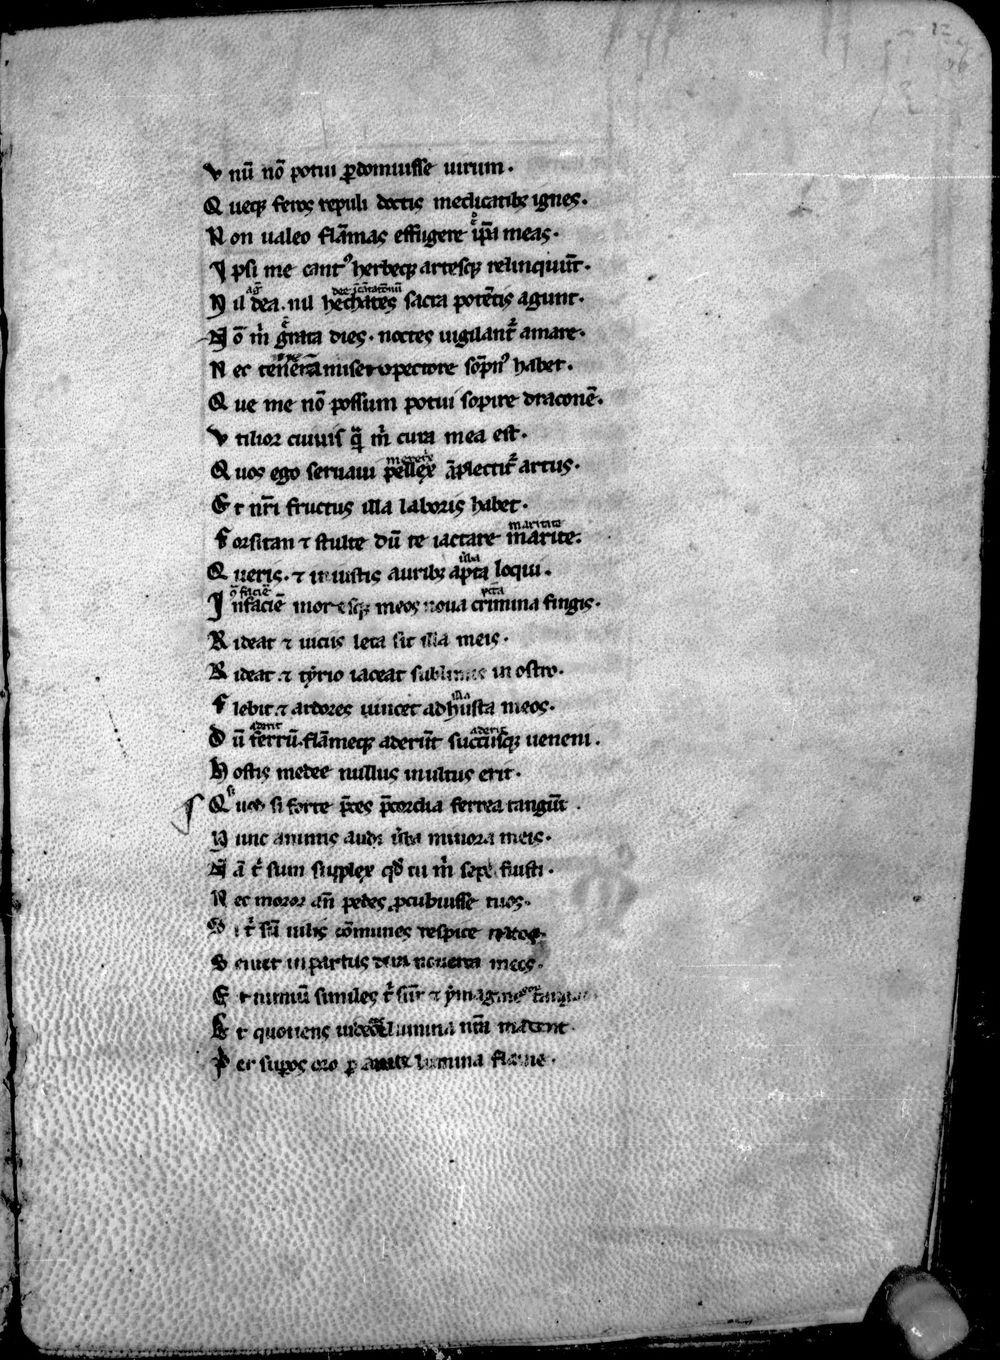 V nū nō potui ꝑdomuisse uirum.
Q ueqꝫ feros repuli doctis medicatibꝫ ignes.
N on ualeo flāmas effugere ip̄a meas.
I psi me cantꝰ herbeqꝫ artesqꝫ relinquūt.
N il dea. nil hechates sacra potētis agunt.
N ō m̄ grata dies. noctes uigilant̄ amare.
N ec tenera misero pectore sōpnꝰ habet.
Q ue me nō possum potui sopire draconē.
V tilior cuiuis q̄ m̄ cura mea est.
Q uos ego seruaui pellex āplectit̄ artus.
E t nr̄i fructus illa laboris habet.
F orsitan ⁊ stulte dū te iactare marite.
Q ueris. ⁊ iniustis auribꝫ apta loqui.
I nfaciē moresqꝫ meos noua crimina fingis.
R ideat ⁊ uiciis leta sit illa meis.
R ideat ⁊ tyrio iaceat sublimis in ostro.
F lebit ⁊ ardores uincet adhusta meos.
D ū ferrū flāmeqꝫ aderūt succusqꝫ ueneni.
H ostis medee nullus inultus erit.
Q uod si forte p̄ces p̄cordia ferrea tangūt.
N unc animis audi uba minora meis.
N ā t̄ sum suplex qd̄ tu m̄ sepe fuisti.
N ec moror an̄ pedes ꝓcubuisse tuos.
S i t̄ sū uilis cōmunes respice natos.
S euiet in partus dira nouerca meos.
E t nimiū similes t̄ sūt ⁊ ymagine tangor
E t quotiens uideo lumina nr̄a madent.
P er supos oro ꝑ auite lumina flāme.